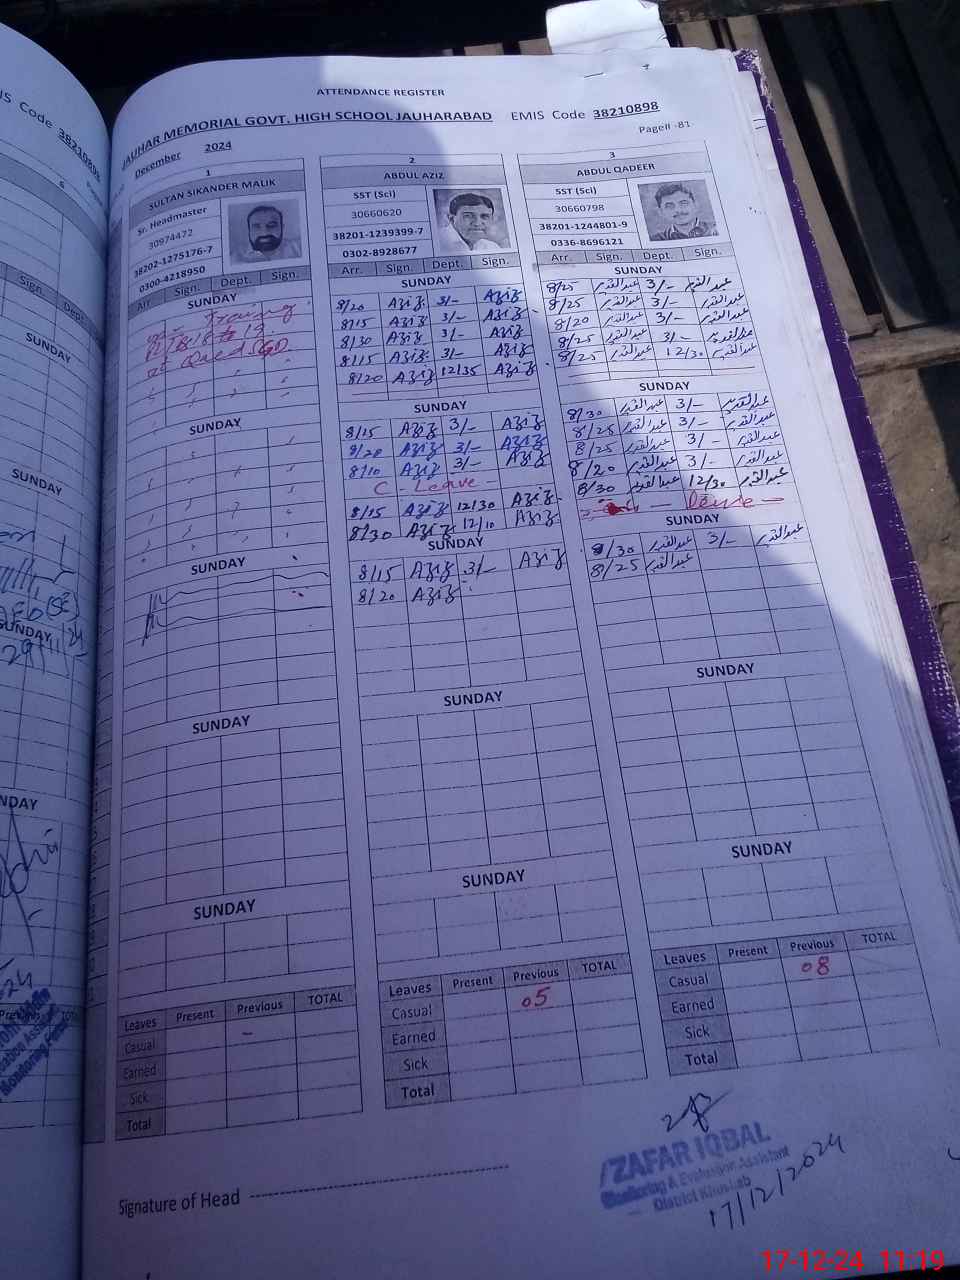 ATTENDANCE REGISTER
JAUHAR MEMORIAL GOVT. HIGH SCHOOL JAUHARABAD EMIS Code 38210898
December 2024 Page# -81
1
SULTAN SIKANDER MALIK
Sr. Headmaster
30974472
38202-1275176-7
0300-4218950
Arr. Sign. Dept. Sign.
SUNDAY
Training
SUNDAY
SUNDAY
SUNDAY
SUNDAY
Leaves Present Previous TOTAL
Casual -
Earned
Sick
Total
2
ABDUL AZIZ
SST (Sci)
30660620
38201-1239399-7
0302-8928677
Arr. Sign. Dept. Sign.
SUNDAY
8/20 Aziz 3/- Aziz
8/15 Aziz 3/- Aziz
8/30 Aziz 3/- Aziz
8/15 Aziz 3/- Aziz
8/20 Aziz 12/35 Aziz
SUNDAY
8/15 Aziz 3/- Aziz
8/20 Aziz 3/- Aziz
8/10 Aziz 3/- Aziz
C. Leave -
8/15 Aziz 12/30 Aziz
8/30 Aziz 12/10 Aziz
SUNDAY
8/15 Aziz 3/- Aziz
8/20 Aziz
SUNDAY
SUNDAY
Leaves Present Previous TOTAL
Casual 05
Earned
Sick
Total
3
ABDUL QADEER
SST (Sci)
30660798
38201-1244801-9
0336-8696121
Arr. Sign. Dept. Sign.
SUNDAY
8/25 عبدالقدیر 3/- عبدالقدیر
8/25 عبدالقدیر 3/- عبدالقدیر
8/20 عبدالقدیر 3/- عبدالقدیر
8/25 عبدالقدیر 3/- عبدالقدیر
8/25 عبدالقدیر 12/30 عبدالقدیر
SUNDAY
8/30 عبدالقدیر 3/- عبدالقدیر
8/25 عبدالقدیر 3/- عبدالقدیر
8/25 عبدالقدیر 3/- عبدالقدیر
8/20 عبدالقدیر 3/- عبدالقدیر
8/30 عبدالقدیر 12/30 عبدالقدیر
— leave —
SUNDAY
8/30 عبدالقدیر 3/- عبدالقدیر
8/25 عبدالقدیر
SUNDAY
SUNDAY
Leaves Present Previous TOTAL
Casual 08
Earned
Sick
Total
Signature of Head
ZAFAR IQBAL
Monitoring & Evaluation Assistant
District Khushab
17/12/2024
17-12-24 11:19